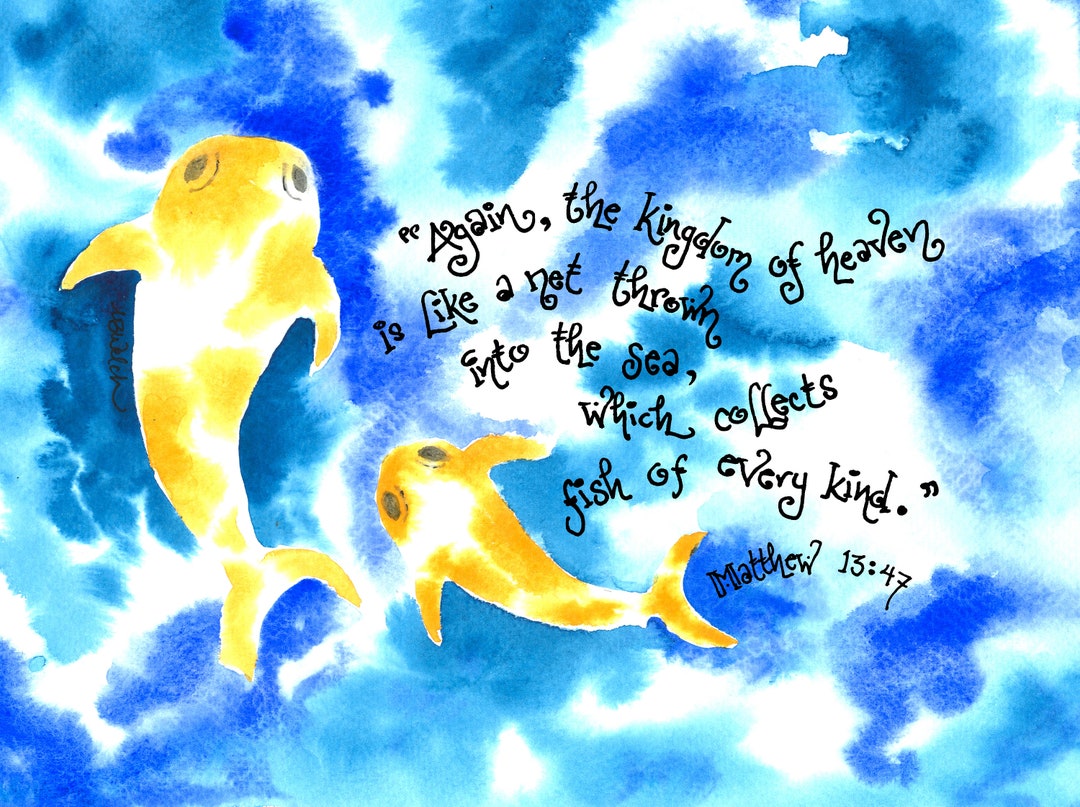 “Again, the kingdom of heaven
is like a net thrown
into the sea,
which collects
fish of every kind.”
Matthew 13:47